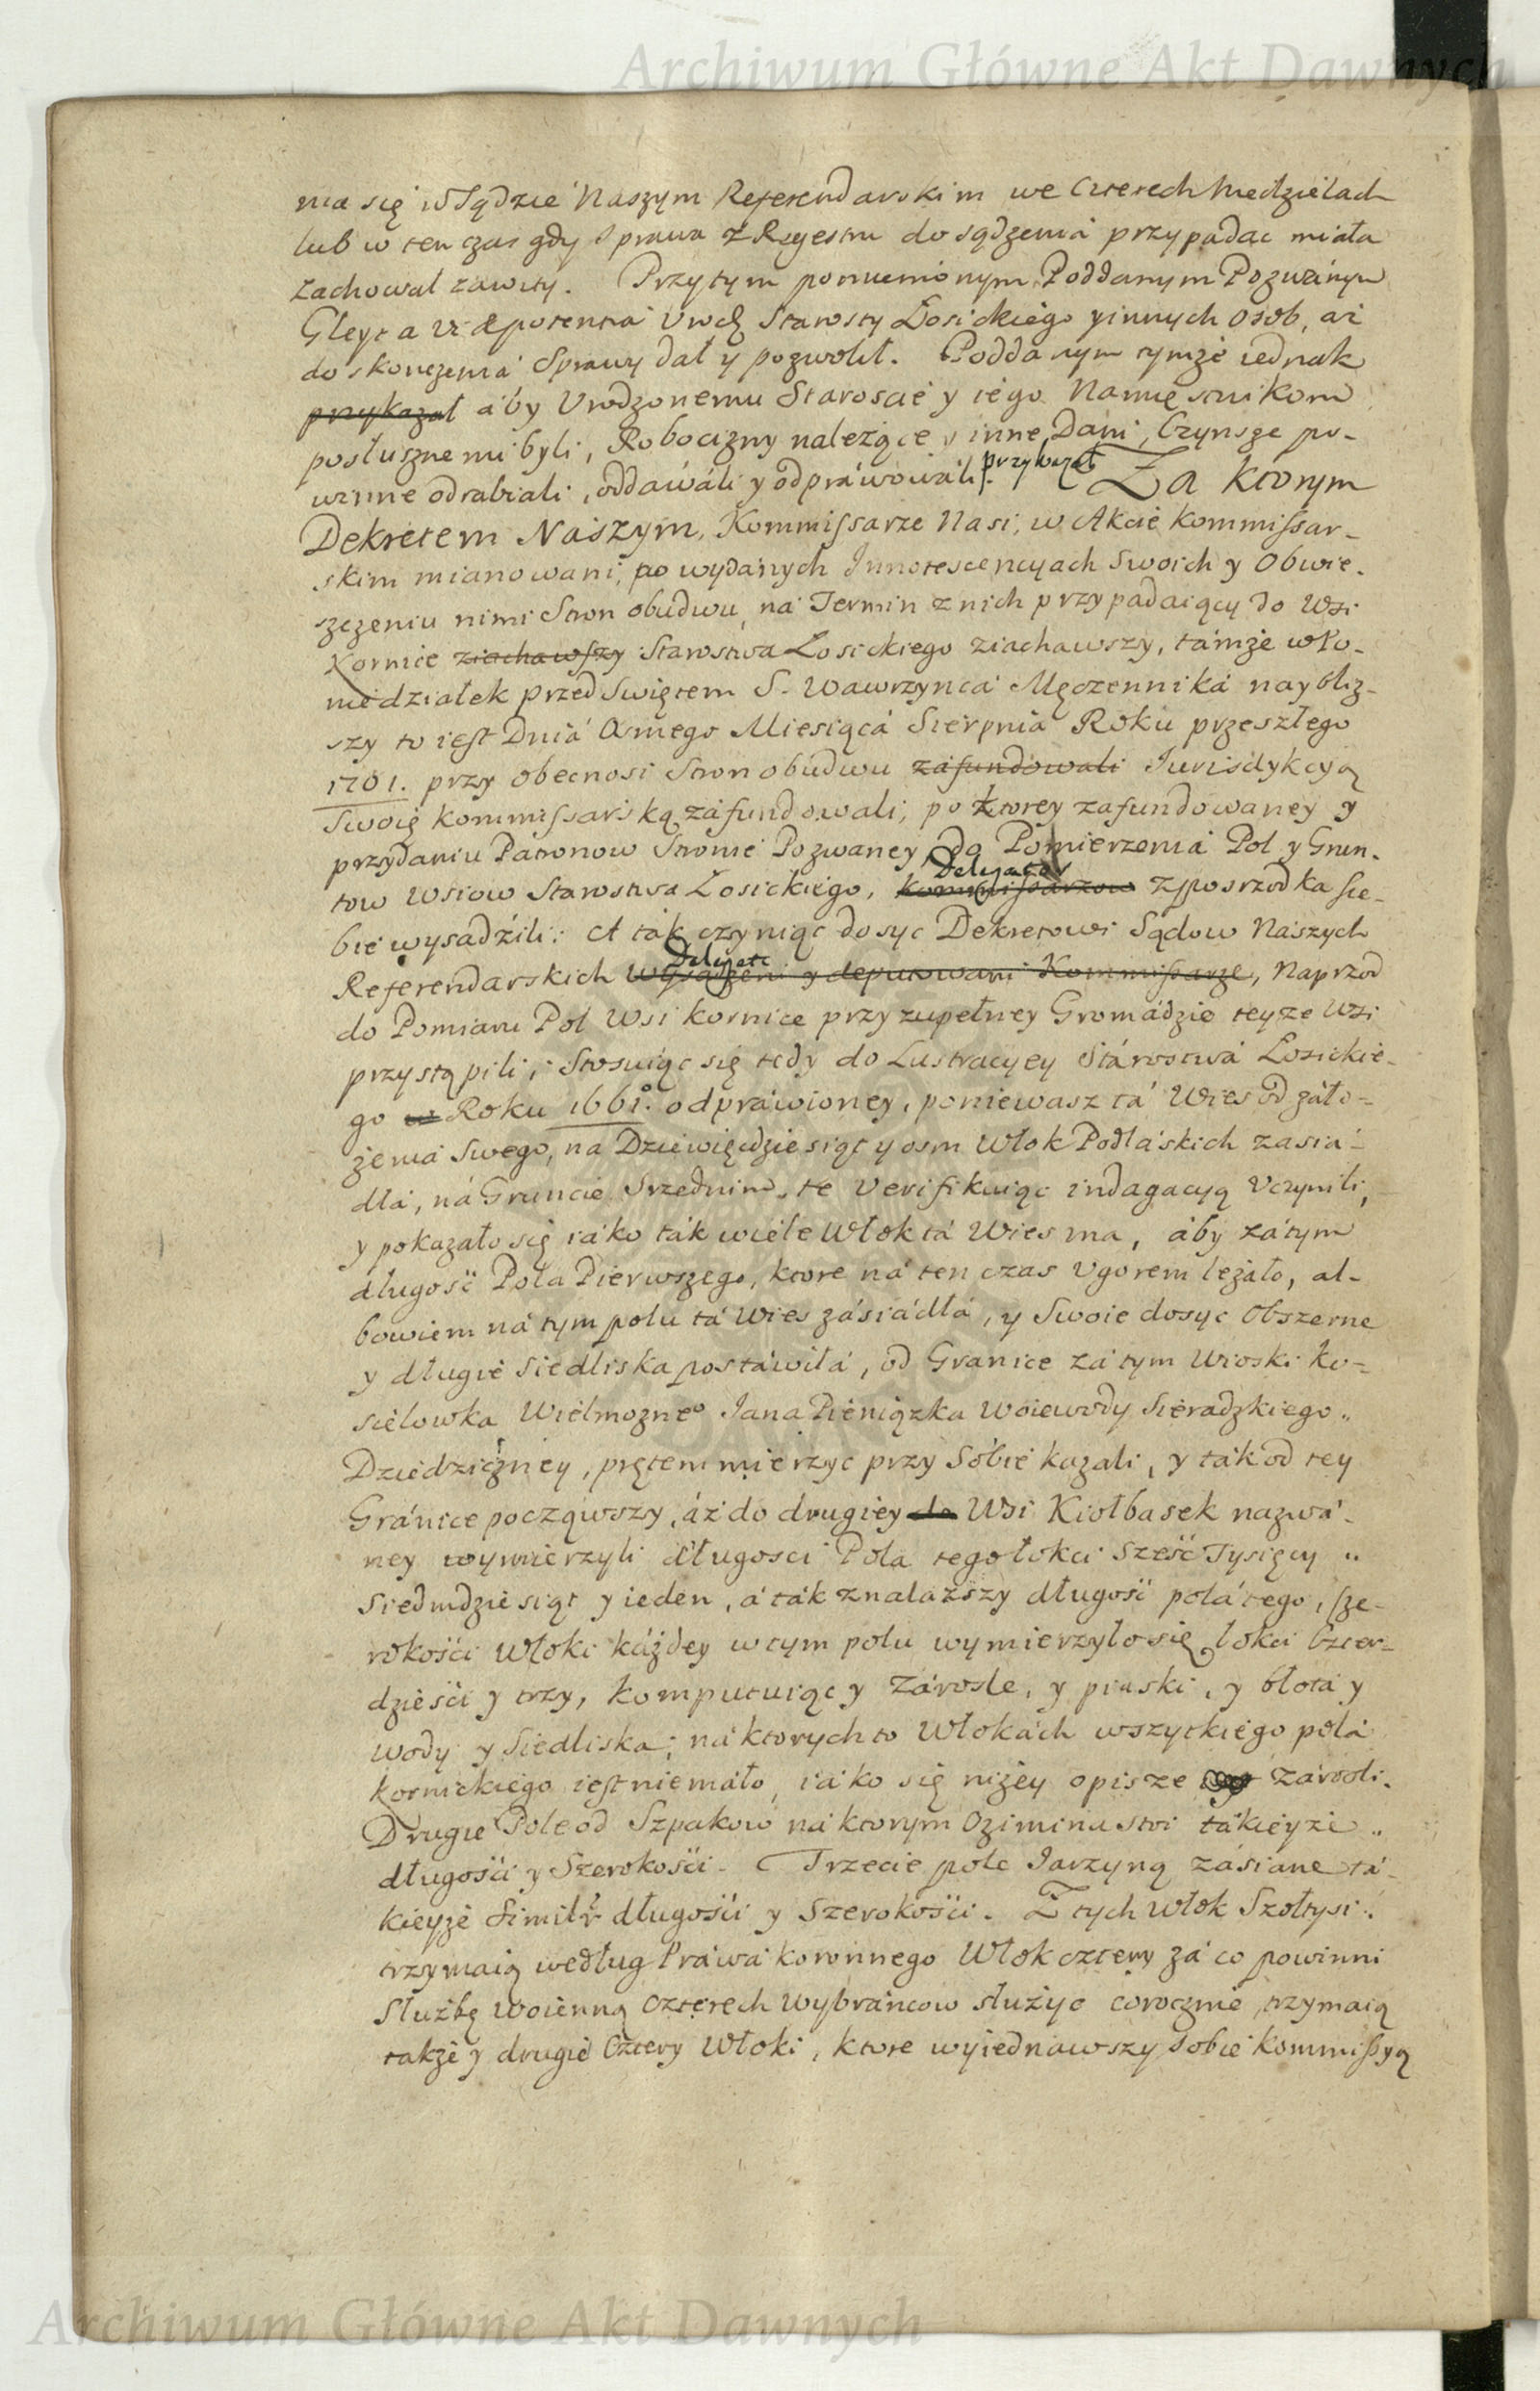 Archiwum Główne Akt Dawnych
nia się w Sądzie Naszym Referendarskim we Czterech Niedzielach
lub w ten czas gdy Sprawa z Regestru do sądzenia przypadac miała
zachował zawity. Przytym pomienionym Poddanym Pozwanym
Gleyt a vi & potentia Urodz Starosty Łosickiego y innych osob, aż
do skonczenia Sprawy dał y pozwolił. Poddanym tymże iednak
przykazał aby Urodzonemu Staroscie y iego Namięstnikom
posłusznemi byli, Robocizny należące y inne Dani, Czynsze po-
winne odrabiali, oddawali y odprawowali przykazał. Za ktorym
Dekretem Naszym, Kommissarze Nasi, w Akcie Kommissar-
skim mianowani, po wydanych Innotescencyach Swoich y Obwie-
szczeniu nimi Stron obudwu, na Termin z nich przypadaiący do Wsi
Kornice ziachawszy Starostwa Łosickiego ziachawszy, tamże w Po-
niedziałek przed Swiętem S. Wawrzynca Męczennika naybliz-
szy to iest Dnia Osmego Miesiąca Sierpnia Roku przeszłego
1701. przy obecnosi Stron obudwu zafundowali Iurisdykcyą
Swoię Kommissarską zafundowali, po ktorey zafundowaney y
przydaniu Patronow Stronie Pozwaney, do Pomierzenia Pol y Grun-
tow Wsiow Starostwa Łosickiego, Kommissarzow Delegatow zposrzodka sie-
bie wysadzili: A tak czyniąc dosyc Dekretowi Sądow Naszych
Referendarskich wysadzeni y deputowani Kommissarze Delegati, Naprzod
do Pomiaru Pol Wsi Kornice przy zupełney Gromadzie teyze Wsi
przystąpili; Stosuiąc się tedy do Lustracyey Starostwa Łosickie-
go w Roku 1661. odprawioney, poniewasz ta Wies od zało-
żenia Swego, na Dziewięcdziesiąt y osm Włok Podlaskich zasia-
dła, na Gruncie Srzednim, te Verifikuiąc indagacyą Uczynili,
y pokazało się iako tak wiele Włok ta Wies ma, aby zatym
długość Pola Pierwszego, ktore na ten czas Ugorem leżało, al-
bowiem na tym polu ta Wies zasiadła, y Swoie dosyc Obszerne
y długie Siedliska postawiła, od Granice zatym Wioski Ko-
sielowka Wielmozneo Iana Pieniązka Woiewody Sieradzkiego
Dziedziczney, prętem mierzyc przy Sobie kazali, y tak od tey
Granice począwszy, áż do drugiey do Wsi Kiołbasek nazwa-
ney wymierzyli długosci Pola tego łokci Sześć Tysięcy
Siedmdziesiąt y ieden, a tak znalazszy długość pola tego, sze-
rokości Włoki każdey w tym polu wymierzyło się łokci Czter-
dzieści y trzy, komputuiąc y Zarosle, y piaski, y błota y
wody y Siedliska; na ktorych to Włokach wszytkiego pola
kornickiego iest niemało, iako się niżey opisze zarosli.
Drugie Pole od Szpakow na ktorym Ozimina stoi takieyże
długości y Szerokości. Trzecie pole Iarzyną zasiane ta-
kieyże Similr długości y Szerokości. Z tych Włok Szołtysi
trzymaią według Prawa koronnego Włok cztery za co powinni
Służbę Woienną Czterech Wybrancow służyc corocznie, trzymaią
takze y drugie Cztery Włoki, ktore wyiednawszy Sobie Kommissyą
Archiwum Główne Akt Dawnych